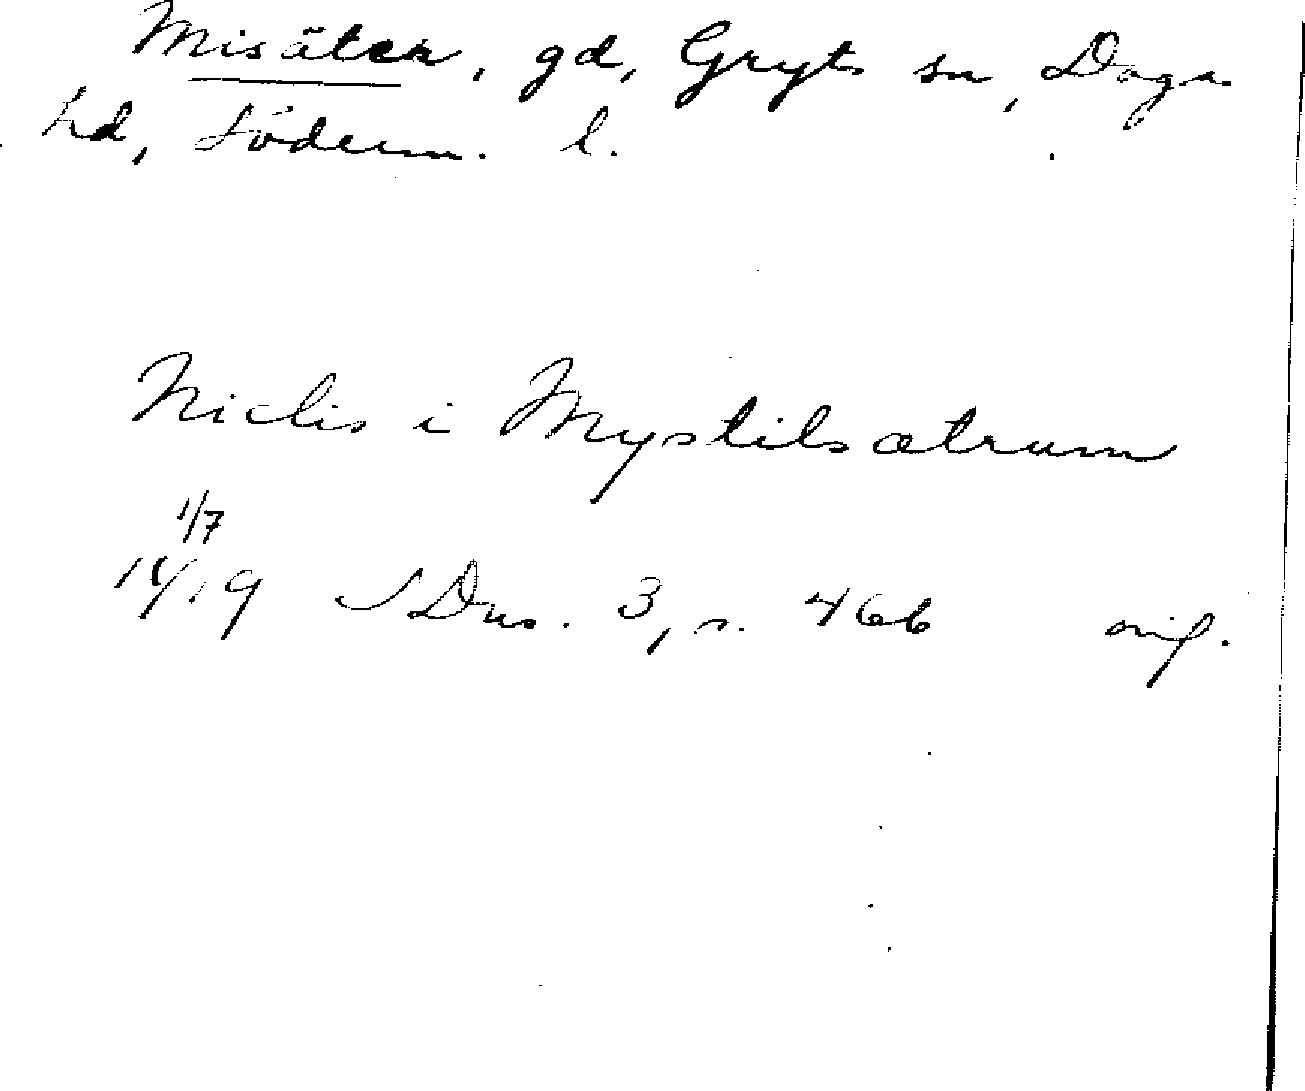 Misäter, gd, Gryts sn, Daga
hd, Söderm. l.
Niclis i Mystilsætrum
1/7
1419 SDns. 3, s. 466 orig.